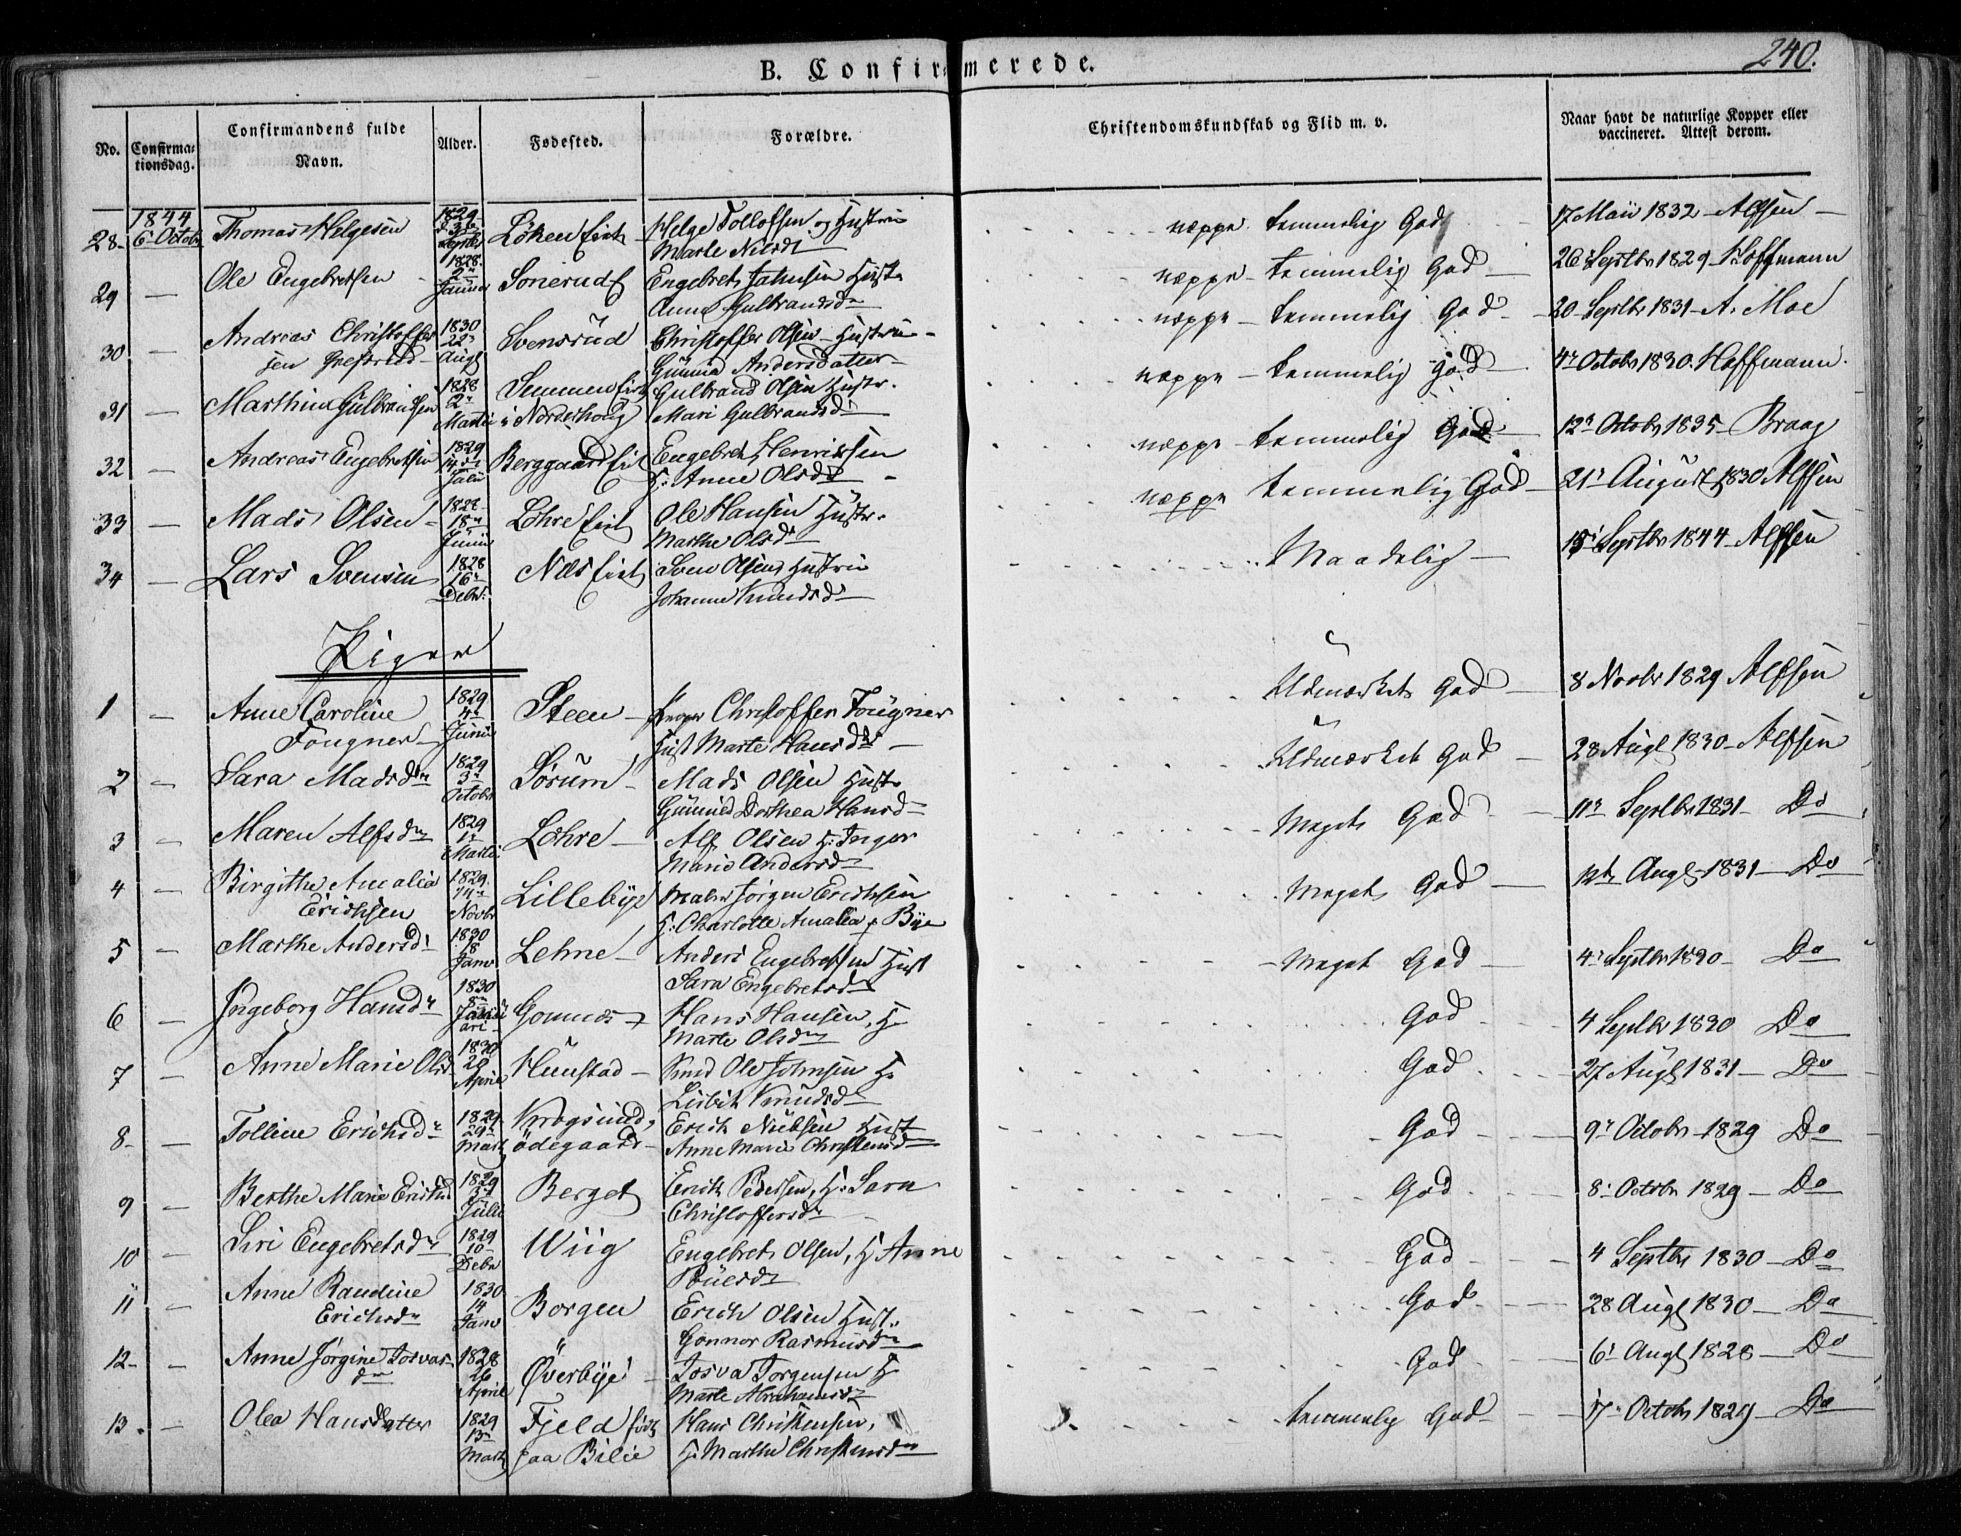 240.
B. Confirmerede.
No. Confirma-tionsdag. Confirmandens fulde Navn. Alder. Fødested. Forældre. Christendomskundskab og Flid m. v. Naar havt de naturlige Kopper eller vaccineret. Attest derom.
1844
28- 6- Octob Thomas Helgesen 1829 Septbr Løken Eiet Helge Tollofsen og Hustru Marte Nilsd næppe temmelig God 17 Maii 1832 - Alfsen -
29 - Ole Engebretsen 1828. 2 Januar Sonerud E Engebret Hustr Anne Gulbrandsdr næppe - temmelig God 26 Septbr 1829 - Hoffmann
30 - Andreas Christoffersen 1830 22 Aug Svensrud Christoffer Olsen - Hustru - Gunnild Andersdatter - næppe - temmelig God - 20 Septbr 1831 - A. Moe
31 - Marthin Gulbrandsen 1828 2 Martii Semmen Eiet i Norderhoug Gulbrand Olsen Hustr. Mari Gulbrandsd næppe - temmelig God 4 Octobr 1830. Hoffmann.
32 - Andreas Engebretsen 1829 14 Juli Berggaard Eiet Engebret Henrichsen H: Anne Olsd - næppe - temmelig God 12 Octobr 1835 - Braag
33 - Mads Olsen - 1828 18 Junii Løhre Eiet Ole Hansen Hustr. Marthe Olsd næppe temmelig God - 21 August 1830 Alfsen
34 - Lars Svensen 1828 16 Debr. Næs Eiet Sven Olsens Hustru Johanne Knudsd Maadelig - 15 Septbr 1844 - Alfsen
Piger
1 - Anne Caroline Fougner 1829 4 Junii Steen - Christoffer Fougner Hust Marte Hansdr - Udmærket God - 8 Novbr 1829 Alfsen
2 - Sara Madsdr 1829 3 Octobr Sørum - Mads Olsen Hustr Gunnild Dorthea Hansd - Udmærket God - 28 Aug 1830 - Alfsen
3 - Maren Alfsdr 1829 1 Martii Løhre - Alf Olsen H: Inger Marie Andersd Meget God - 11 Septbr 1831 - Do
4 - Birgithe Amalia Erichsen 1829. 14 Novbr Lillebye Maler Jørgen Erichsen H: Charlotte Amalia f Bye Meget God - Aug 1831 - Do
5 - Marthe Andersd 1830 18 Janv Lehne - Anders Engebretsen Hust Sara Engebretsd - Meget God - 4 Septbr 1830 - Do
6 - Ingeborg Hansdr 1830 8 Januari Gomnæs Hans Hansen, H Marte Olsdr God 4 Septbr 1830 Do
7 - Anne Marie Olsd 1830 28 April Hunstad - Ole Johnsen H Lisbit Knudsd God 27 Aug 1831 - Do
8- - Tolline Erichsdr 1829 29 Marti Krogsund, ødegaard - Erich Nielsen Hust Anne Marie Christensd God 9 Octobr 1829 Do
9 - Berthe Marie Erichsd 1829 3 Julii Berget Erich Pedersen, H: Sara Christoffersdr God 8 Octobr 1829 - Do
10 - Siri Engebretsdr 1829 10 Debr Wiig Engebret Olsen, H Anne Povelsd God 4 Septbr 1830 - Do
11 - Anne Randine Erichsdr 1830 14 Janv Borgen Erich Olsen Hust. Gonnor Rasmusdr God 28 Aug 1830 - Do
12- - Anne Jørgine Josvasdr 1828 26 April Øverbye - Josva Jørgensen H Marte Abrahamsdr God 6 Aug 1828 - Do
13. - Olea Hansdatter 1829 13 Marti Fjeld født paa Bilie Hans Christensen, H: Marthe Christensdr temmelig God - 17 Octobr 1829 - Do